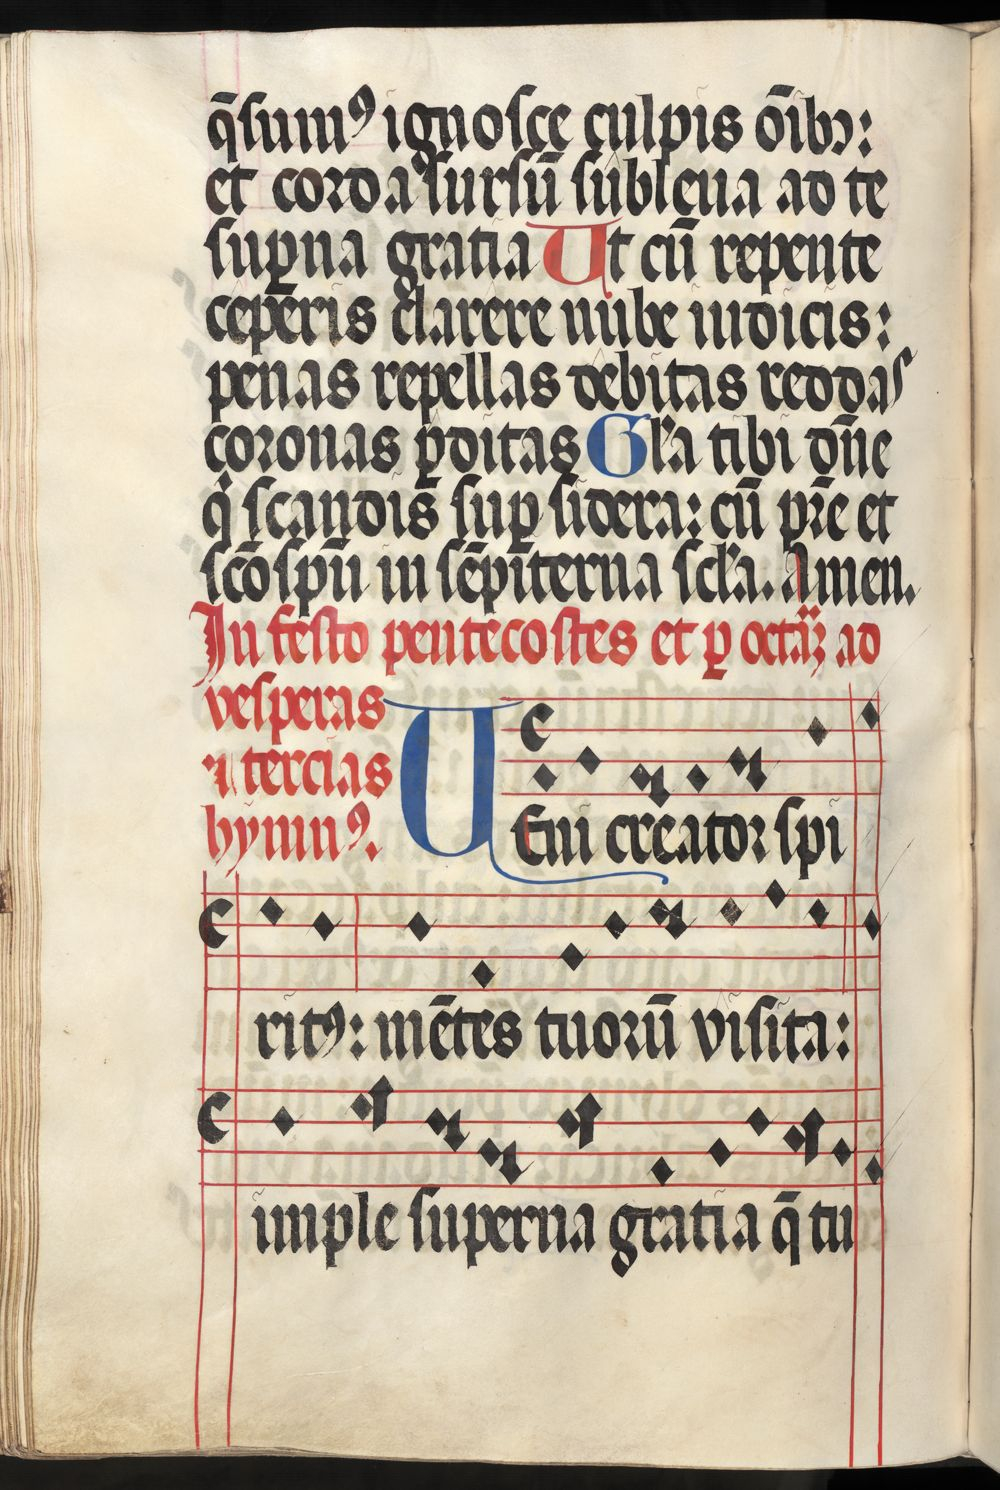 q̄sumꝰ ignosce culpis ōibꝫ:
et corda sursū subleua ad te
suꝑna gratia Ut cū repente
ceperis clarere nube iudicis:
penas repellas debitas reddas
coronas ꝑditas Gl'a tibi dn̄e
qͥ scandis suꝑ sidera: cū pr̄e et
scō spū in sēpiterna scl'a. Amen.
In festo pentecostes et ꝑ octaꝝ ad
vesperas
⁊ tercias
hymnꝰ.
UEni creator spi
ritꝰ: mētes tuorū visita:
imple superna gratia q̄ tu